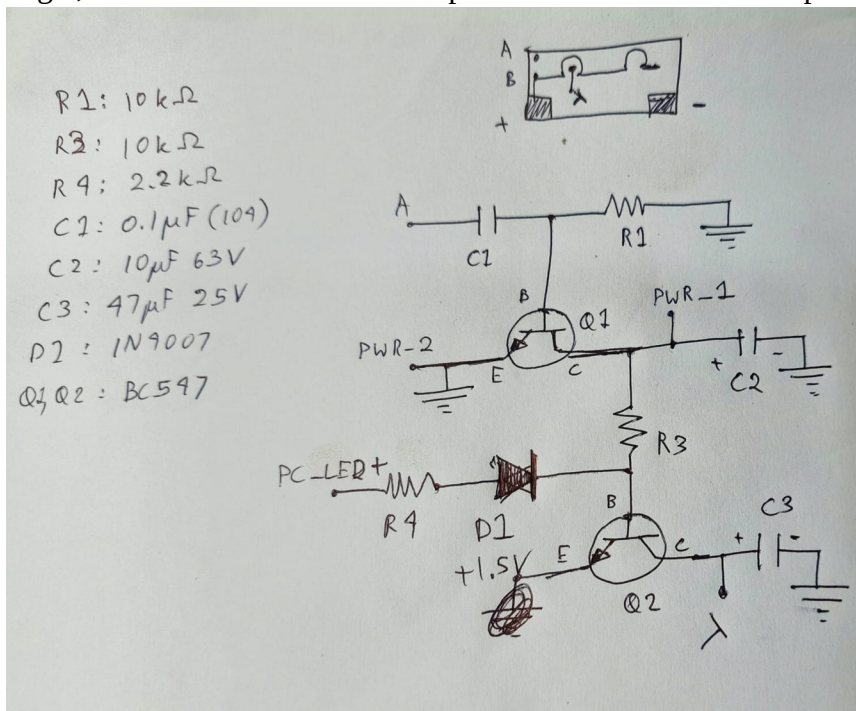 A
B
+
-
λ
R1: 10kΩ
R3: 10kΩ
R4: 2.2kΩ
C1: 0.1μF (104)
C2: 10μF 63V
C3: 47μF 25V
D1: 1N4007
Q1, Q2: BC547
A
C1
R1
B
Q1
PWR_1
PWR-2
E
C
+
-
C2
R3
PC_LED+
R4
D1
B
C3
+1.5V
E
C
+
-
Q2
λ